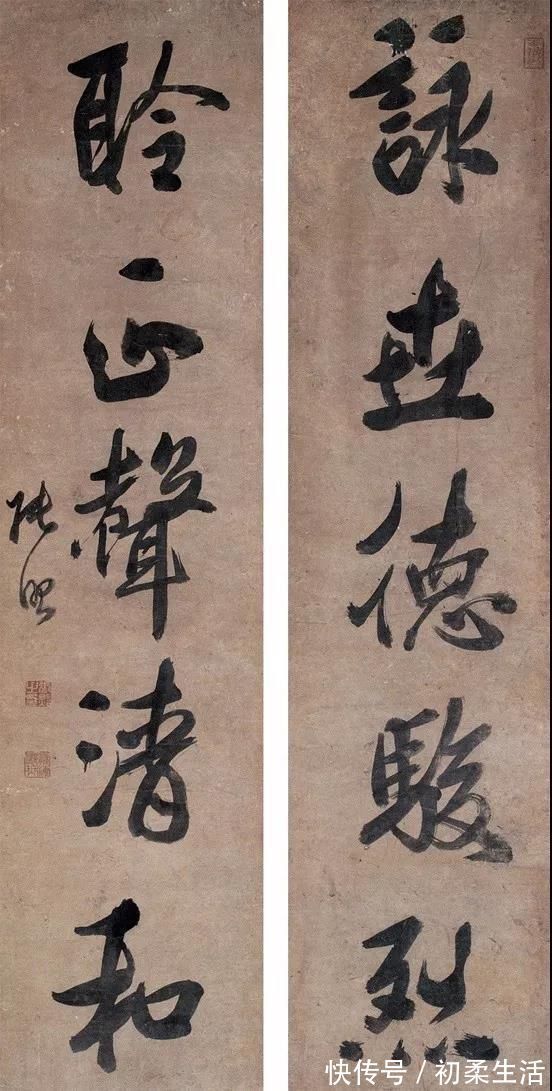 詠世德駿烈
聆正聲清和
張照
快传号 / 初柔生活